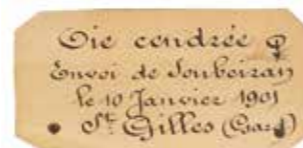 Oie cendrée ♀
Envoi de Soubeiran
le 10 Janvier 1901
St. Gilles (Gard)